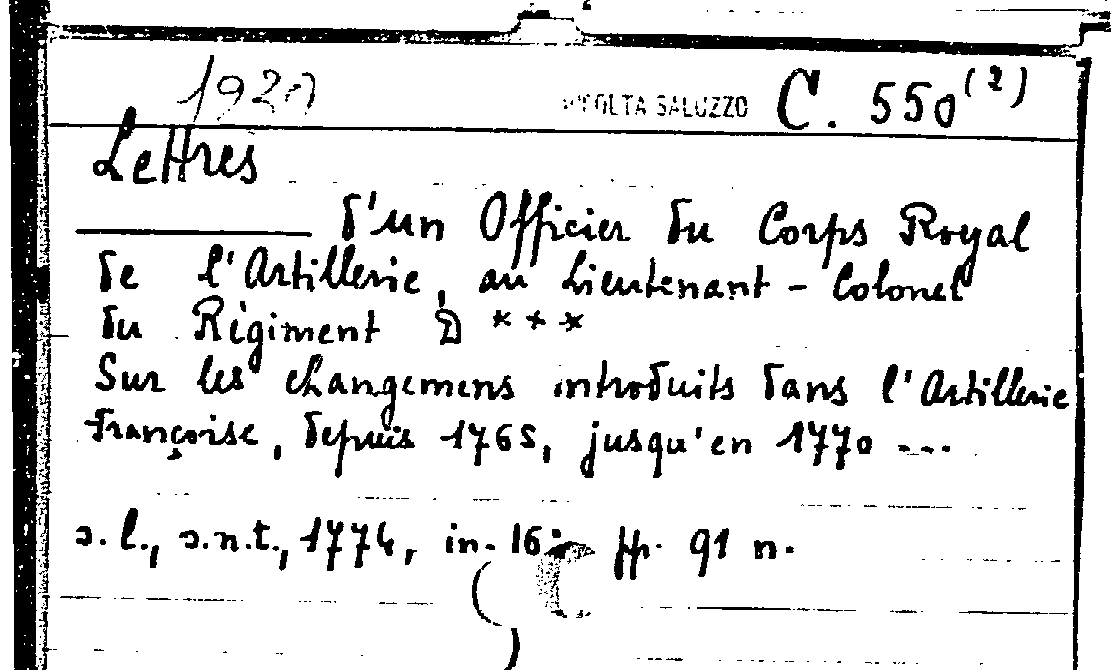 1920
RACCOLTA SALUZZO C. 550(2)
Lettres
d'un Officier du Corps Royal
de l'Artillerie, au Lieutenant - Colonel
du Règiment D ***
Sur les changemens introduits dans l'Artillerie
françoise, depuis 1765, jusqu'en 1770 ...
s.l., s.n.t., 1774, in-16: pp. 91 n.